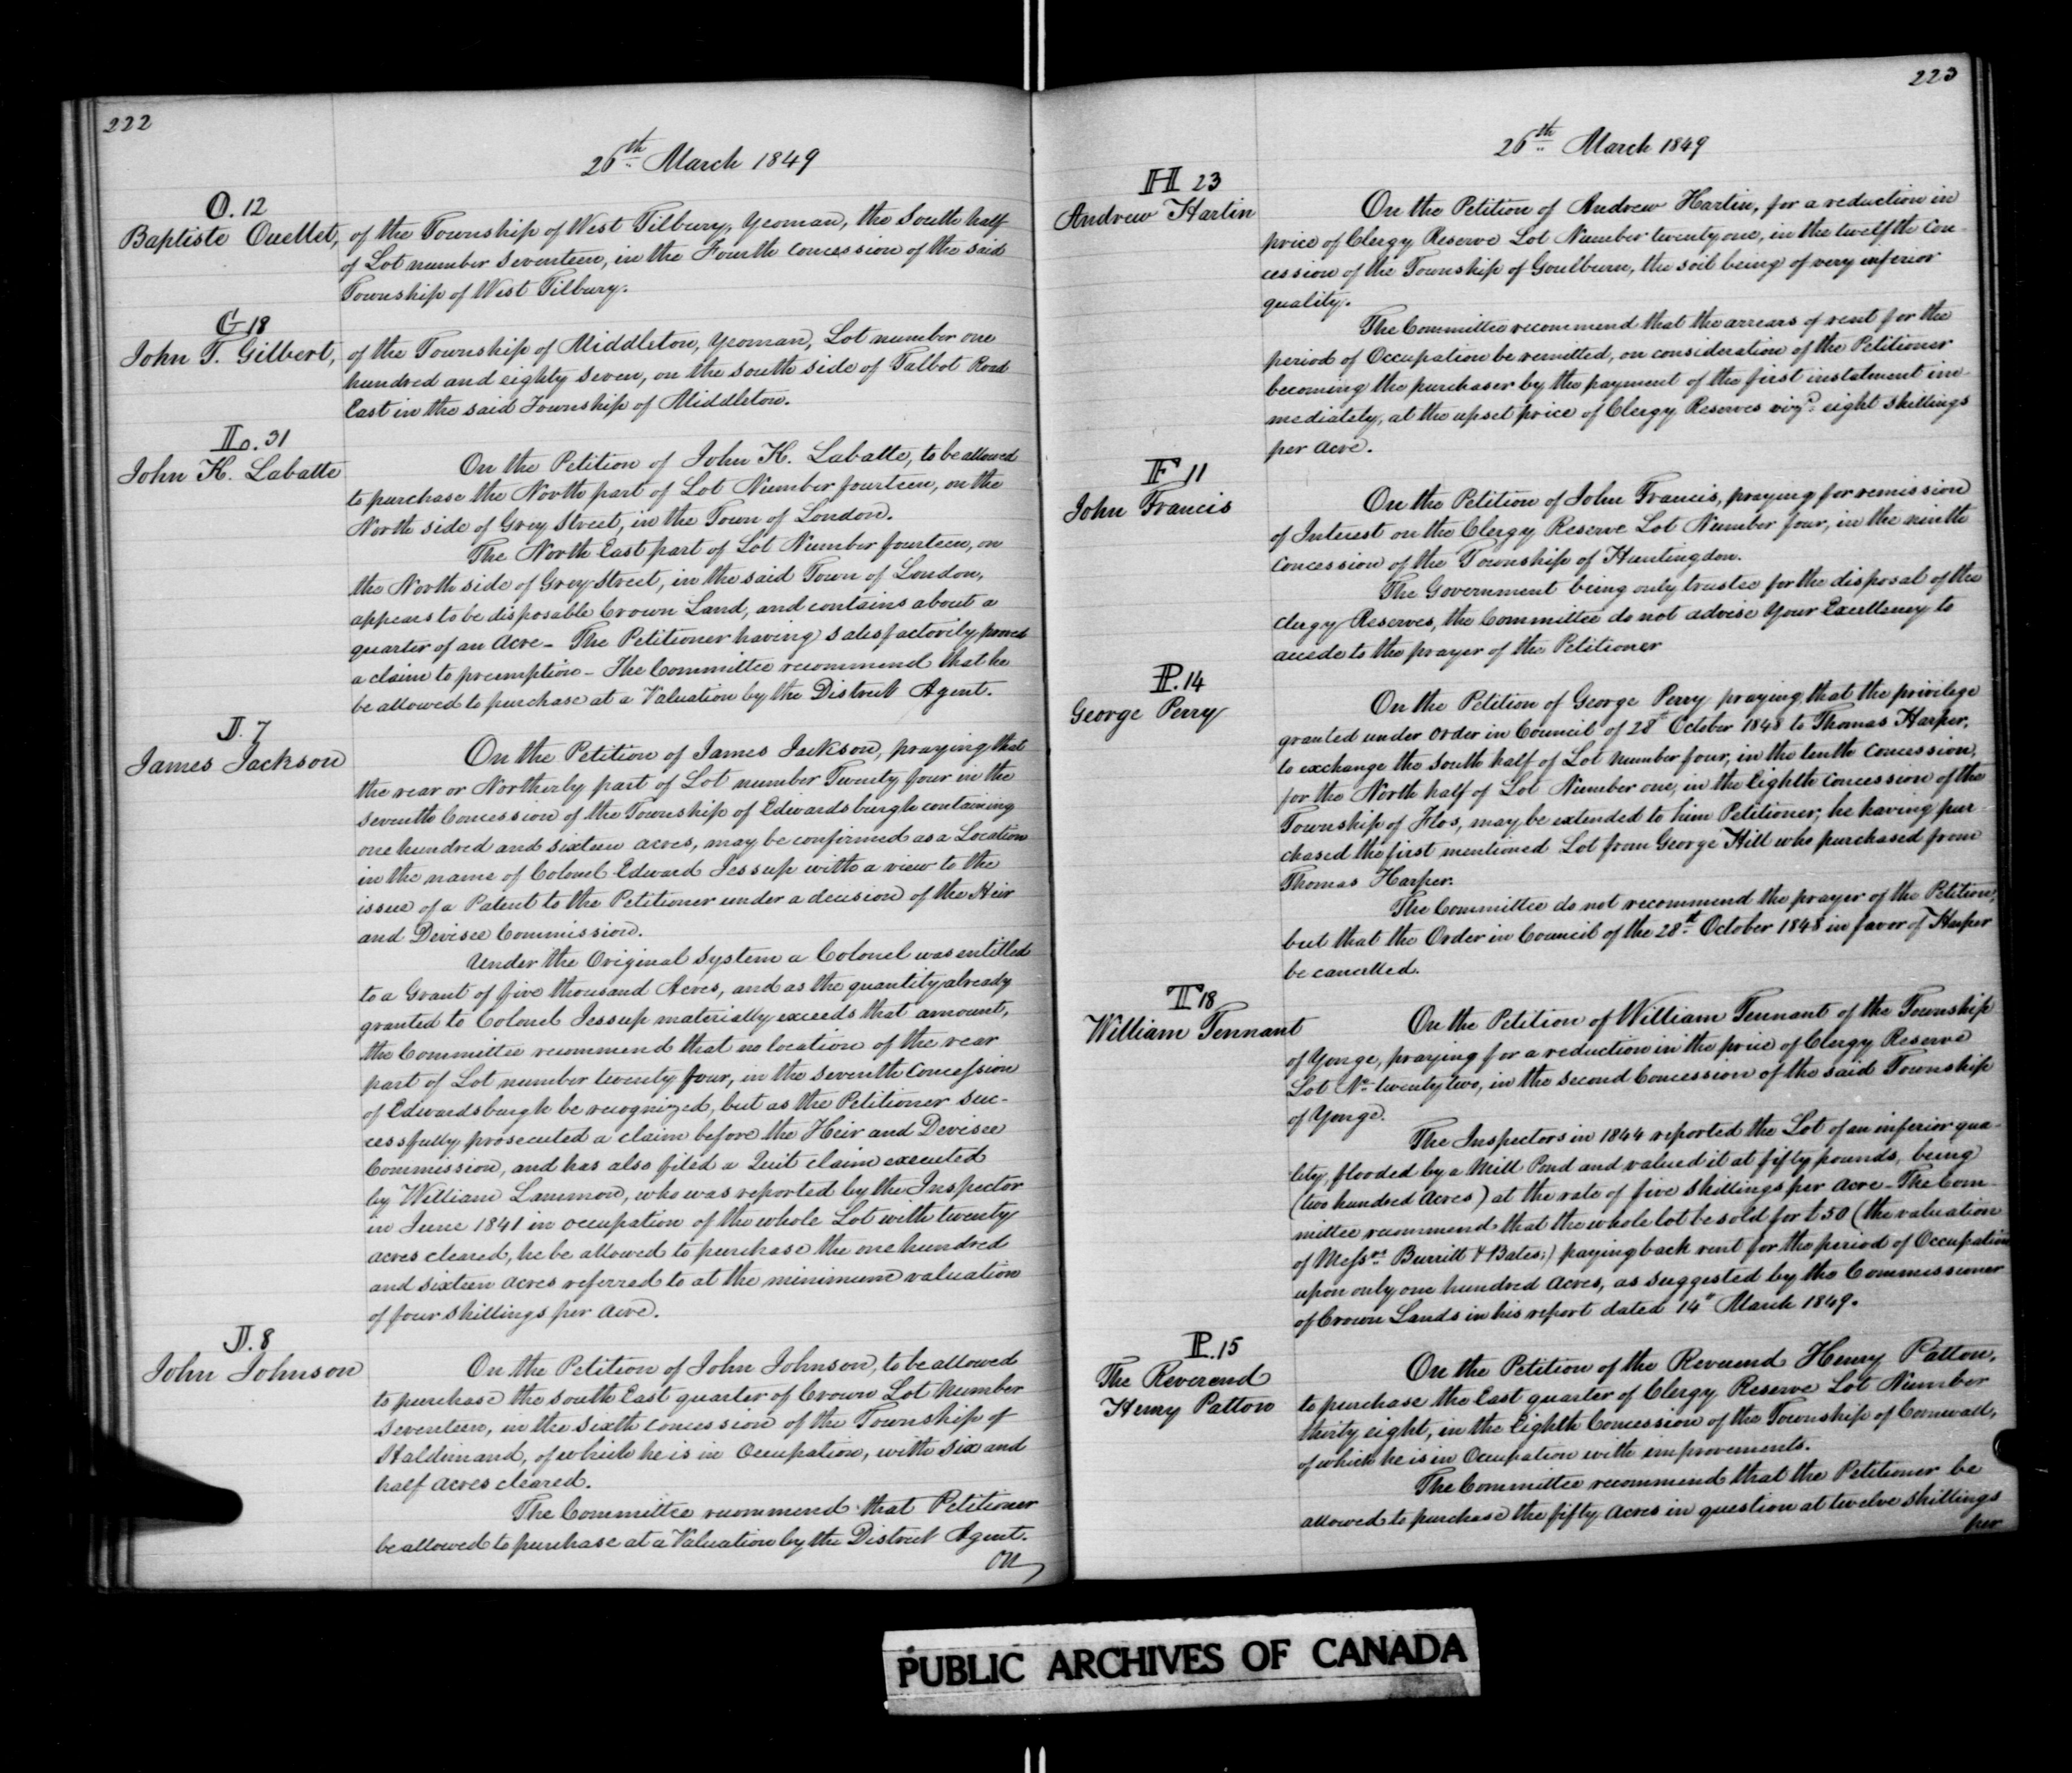 222
26th March 1849
O. 12
Baptiste Ouellet, of the Township of West Tilbury, Yeoman, the South half
of Lot number Seventeen, in the Fourth concession of the said
Township of West Tilbury.
G 18
John T. Gilbert, of the Township of Middleton, Yeoman, Lot number one
hundred and eighty seven, on the South side of Talbot Road
East in the said Township of Middleton.
L. 31
John K. Labatte
On the Petition of John K. Labatte, to be allowed
to purchase the North part of Lot Number fourteen, on the
North side of Grey Street, in the Town of London.
The North East part of Lot Number fourteen, on
the North side of Grey Street, in the said Town of London,
appears to be disposable Crown Land, and contains about a
quarter of an Acre - The Petitioner having satisfactorily proved
a claim to preemption - The Committee recommend that he
be allowed to purchase at a Valuation by the District Agent.
J. 7
James Jackson
On the Petition of James Jackson, praying that
the rear or Northerly part of Lot number Twenty four in the
Seventh Concession of the Township of Edwardsburgh containing
one hundred and sixteen acres, may be confirmed as a Location
in the name of Colonel Edward Jessup with a view to the
issue of a Patent to the Petitioner under a decision of the Heir
and Devisee Commission.
Under the Original System a Colonel was entitled
to a Grant of five thousand Acres, and as the quantity already
granted to Colonel Jessup materially exceeds that amount,
the Committee recommend that no location of the rear
part of Lot number twenty four, in the Seventh Concession
of Edwardsburgh be recognized, but as the Petitioner suc-
cessfully prosecuted a claim before the Heir and Devisee
Commission, and has also filed a Quit claim executed
by William Lammon, who was reported by the Inspector
in June 1841 in occupation of the whole Lot with twenty
acres cleared, he be allowed to purchase the one hundred
and sixteen acres referred to at the minimum valuation
of four shillings per acre.
J. 8
John Johnson
On the Petition of John Johnson, to be allowed
to purchase the South East quarter of Crown Lot Number
Seventeen, in the Sixth concession of the Township of
Haldimand, of which he is in Occupation, with Six and
half acres cleared.
The Committee recommend that Petitioner
be allowed to purchase at a Valuation by the District Agent.
On
223
26th March 1849
H 23
Andrew Hartin
On the Petition of Andrew Hartin, for a reduction in
price of Clergy Reserve Lot Number twenty one, in the twelfth Con-
cession of the Township of Goulburn, the soil being of very inferior
quality.
The Committee recommend that the arrears of rent for the
period of Occupation be remitted, on consideration of the Petitioner
becoming the purchaser by the payment of the first instalment im-
mediately, at the upset price of Clergy Reserves vizt eight shillings
per acre.
F 11
John Francis
On the Petition of John Francis, praying for remission
of Interest on the Clergy Reserve Lot Number four, in the ninth
Concession of the Township of Huntingdon.
The Government being only trustee for the disposal of the
Clergy Reserves, the Committee do not advise Your Excellency to
accede to the prayer of the Petitioner
P. 14
George Perry
On the Petition of George Perry praying that the privilege
granted under Order in Council of 28th October 1848 to Thomas Harper,
to exchange the South half of Lot number four, in the tenth Concession,
for the North half of Lot Number one, in the Eighth Concession of the
Township of Flos, may be extended to him Petitioner; he having pur-
chased the first mentioned Lot from George Hill who purchased from
Thomas Harper.
The Committee do not recommend the prayer of the Petition,
but that the Order in Council of the 28th October 1848 in favor of Harper
be cancelled.
T 18
William Tennant
On the Petition of William Tennant of the Township
of Yonge, praying for a reduction in the price of Clergy Reserve
Lot No twenty two, in the Second Concession of the said Township
of Yonge.
The Inspectors in 1844 reported the Lot of an inferior qua-
lity, flooded by a Mill Pond and valued it at fifty pounds, being
(two hundred Acres) at the rate of five shillings per acre - The Com-
mittee recommend that the whole lot be sold for £50 (the valuation
of Messrs Burritt & Bates;) paying back rent for the period of Occupation
upon only one hundred Acres, as suggested by the Commissioner
of Crown Lands in his report dated 14th March 1849.
P. 15
The Reverend
Henry Patton
On the Petition of the Reverend Henry Patton,
to purchase the East quarter of Clergy Reserve Lot Number
thirty eight, in the Eighth Concession of the Township of Cornwall,
of which he is in Occupation with improvements.
The Committee recommend that the Petitioner be
allowed to purchase the fifty Acres in question at twelve shillings
per
PUBLIC ARCHIVES OF CANADA